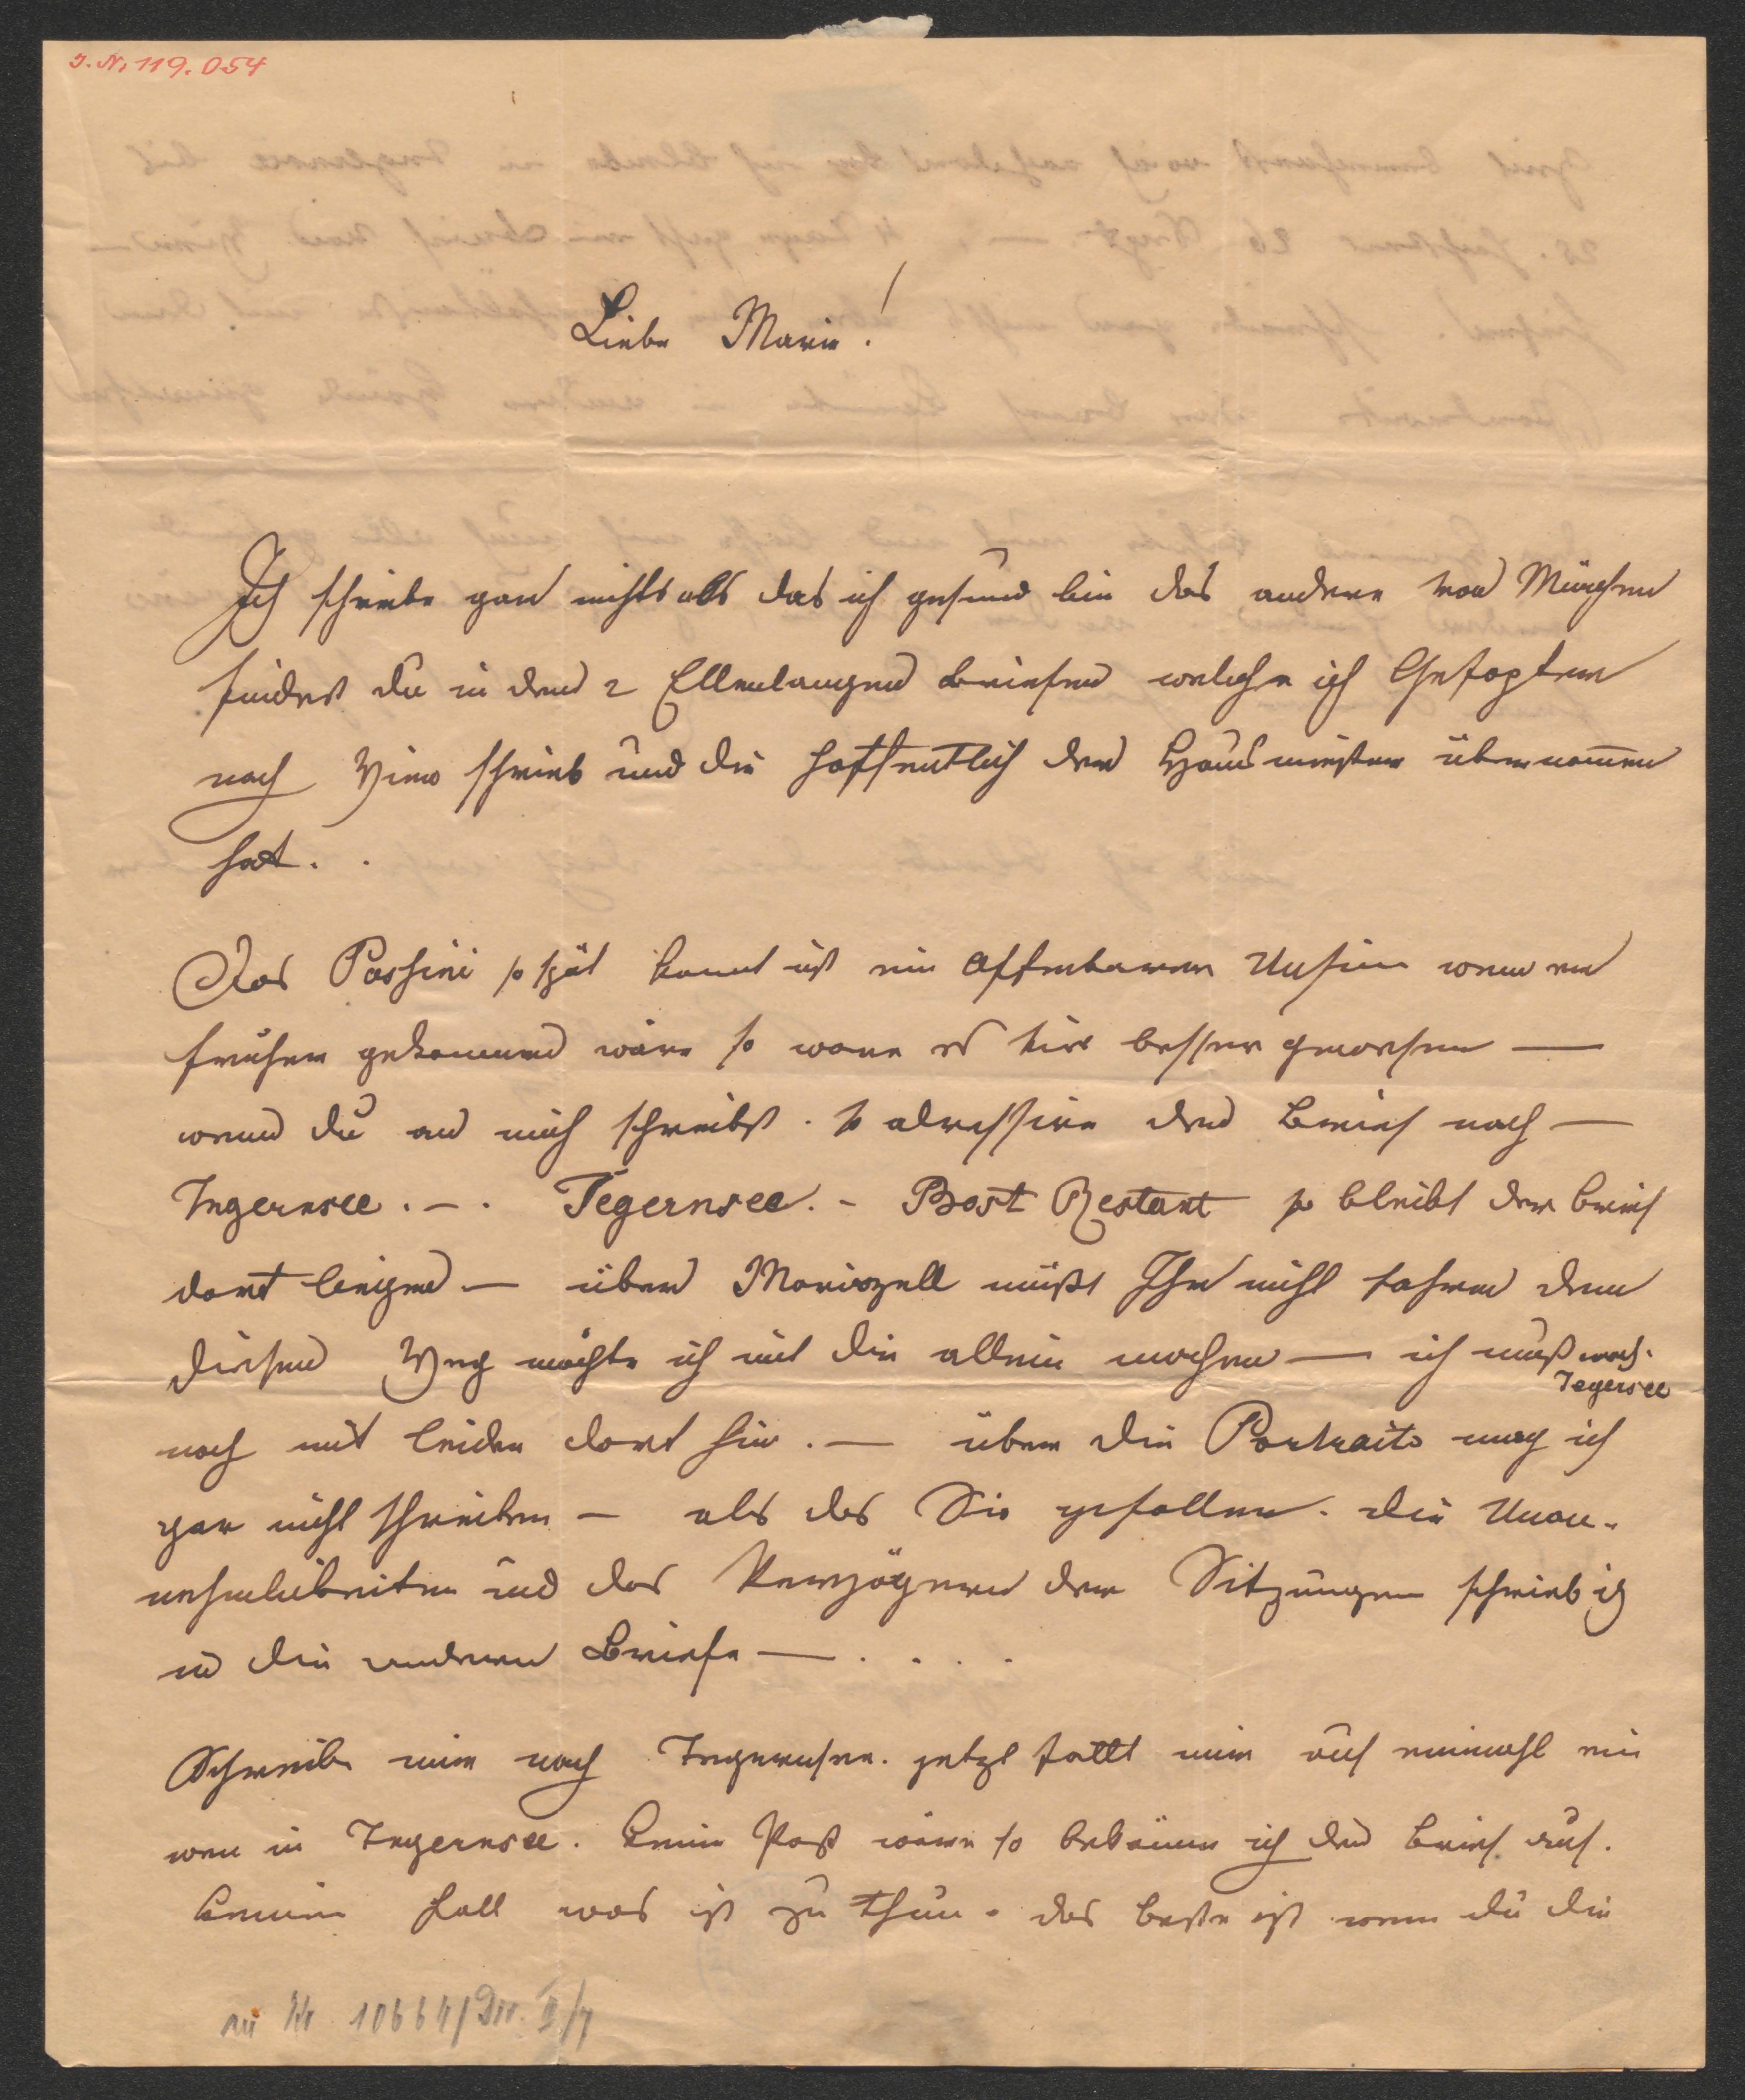 I. N. 119.054
Liebe Marie!
Ich schreibe gar nichts als das ich gesund bin das andere von München
findest du in den 2 Ellenlangen Briefen welche ich
nach Wien schrieb und die hoffentlich der Hausmeister übernom̅en
hat. .
Das Passini so spät kommt ist ein offenbarer Unsinn wenn er
früher gekommen wäre so ware es besser gewesen —
wenn du an mich schreibst. so adressire den Brief nach —
Tegernsee. — . Tegernsee. - Post Restant so bleibt der Brief
dort liegen — über Mariazell müßt Ihr nicht fahren denn
diesen Weg möchte ich mit dir allein machen — ich muß nach.
Tegersee
noch mit leider dort hin. — über die Portraits mag ich
gar nicht schreiben — als das Sie gefallen. die Unan-
nehmlichkeiten und das Verzögern der Sitzungen schrieb ich
in die anderen Briefe — . . . .
Schreibe mir nach Tegernsee. jetzt fallt mir auf einmahl ein
wen in Tegernsee. keine Post wäre so bekäme ich den Brief auf.
keinen Fall was ist zu thun. das beste ist wenn du die
zu Nr 10664/Dir. II/7